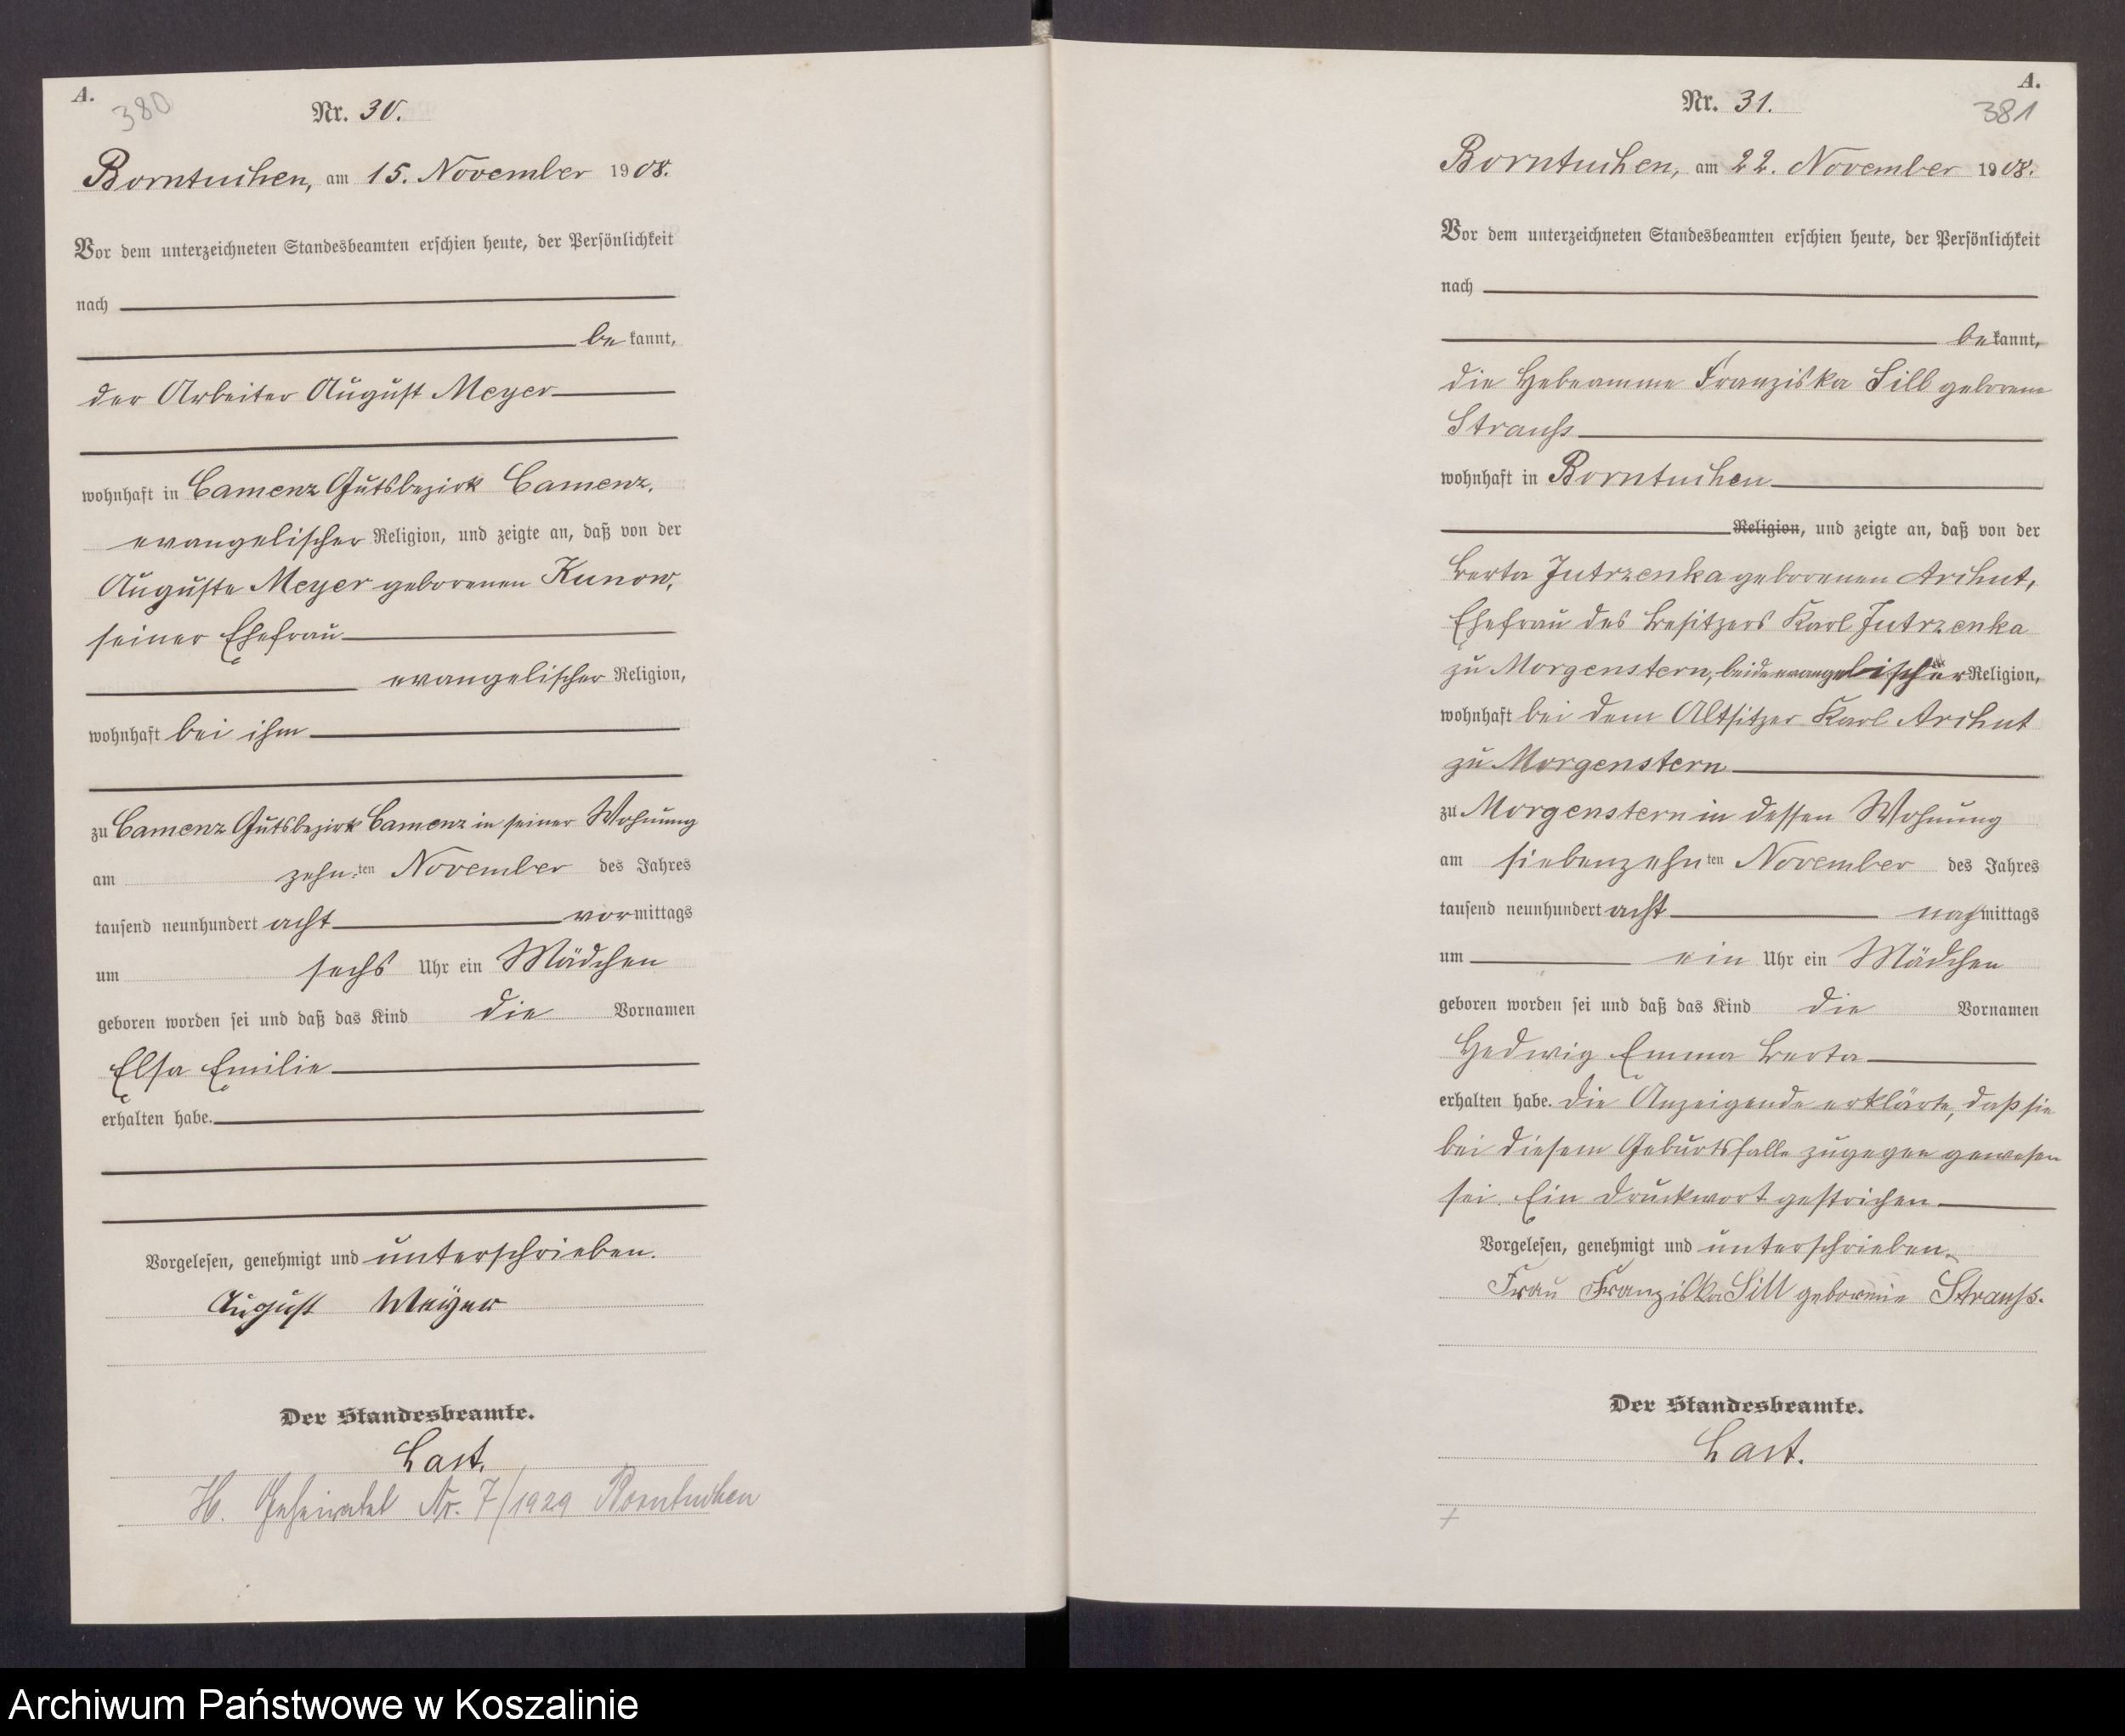 A.
380
Nr. 30.
Borntuchen, am 15. November 1908.
Vor dem unterzeichneten Standesbeamten erschien heute, der Persönlichkeit
nach
be kannt,
der Arbeiter August Meyer
wohnhaft in Camenz Gutsbezirk Camenz,
evangelischer Religion, und zeigte an, daß von der
Auguste Meyer geborenen Kunow,
seiner Ehefrau
evangelischer Religion,
wohnhaft bei ihm
zu Camenz Gutsbezirk Camenz in seiner Wohnung
am zehnten November des Jahres
tausend neunhundert acht vormittags
um sechs Uhr ein Mädchen
geboren worden sei und daß das Kind die Vornamen
Elsa Emilie
erhalten habe.
Vorgelesen, genehmigt und unterschrieben.
August Meÿer
Der Standesbeamte.
Last.
H. Geheiratet Nr. 7/1929 Borntuchen
A.
381
Nr. 31.
Borntuchen, am 22. November 1908.
Vor dem unterzeichneten Standesbeamten erschien heute, der Persönlichkeit
nach
bekannt,
die Hebeamme Franziska Sill geborene
Strauß
wohnhaft in Borntuchen
Religion, und zeigte an, daß von der
Berta Jutrzenka geborenen Archut,
Ehefrau des Besitzers Karl Jutrzenka
zu Morgenstern, beide evangelischer Religion,
wohnhaft bei dem Altsitzer Karl Archut
zu Morgenstern
zu Morgenstern in dessen Wohnung
am siebenzehnten November des Jahres
tausend neunhundert acht nachmittags
um ein Uhr ein Mädchen
geboren worden sei und daß das Kind die Vornamen
Hedwig Emma Berta
erhalten habe. Die Anzeigende erklärte, daß sie
bei diesem Geburtsfalle zugegen gewesen
sei. Ein Druckwort gestrichen
Vorgelesen, genehmigt und unterschrieben.
Frau Franziska Sill geborene Strauß.
Der Standesbeamte.
Last.
Archiwum Państwowe w Koszalinie